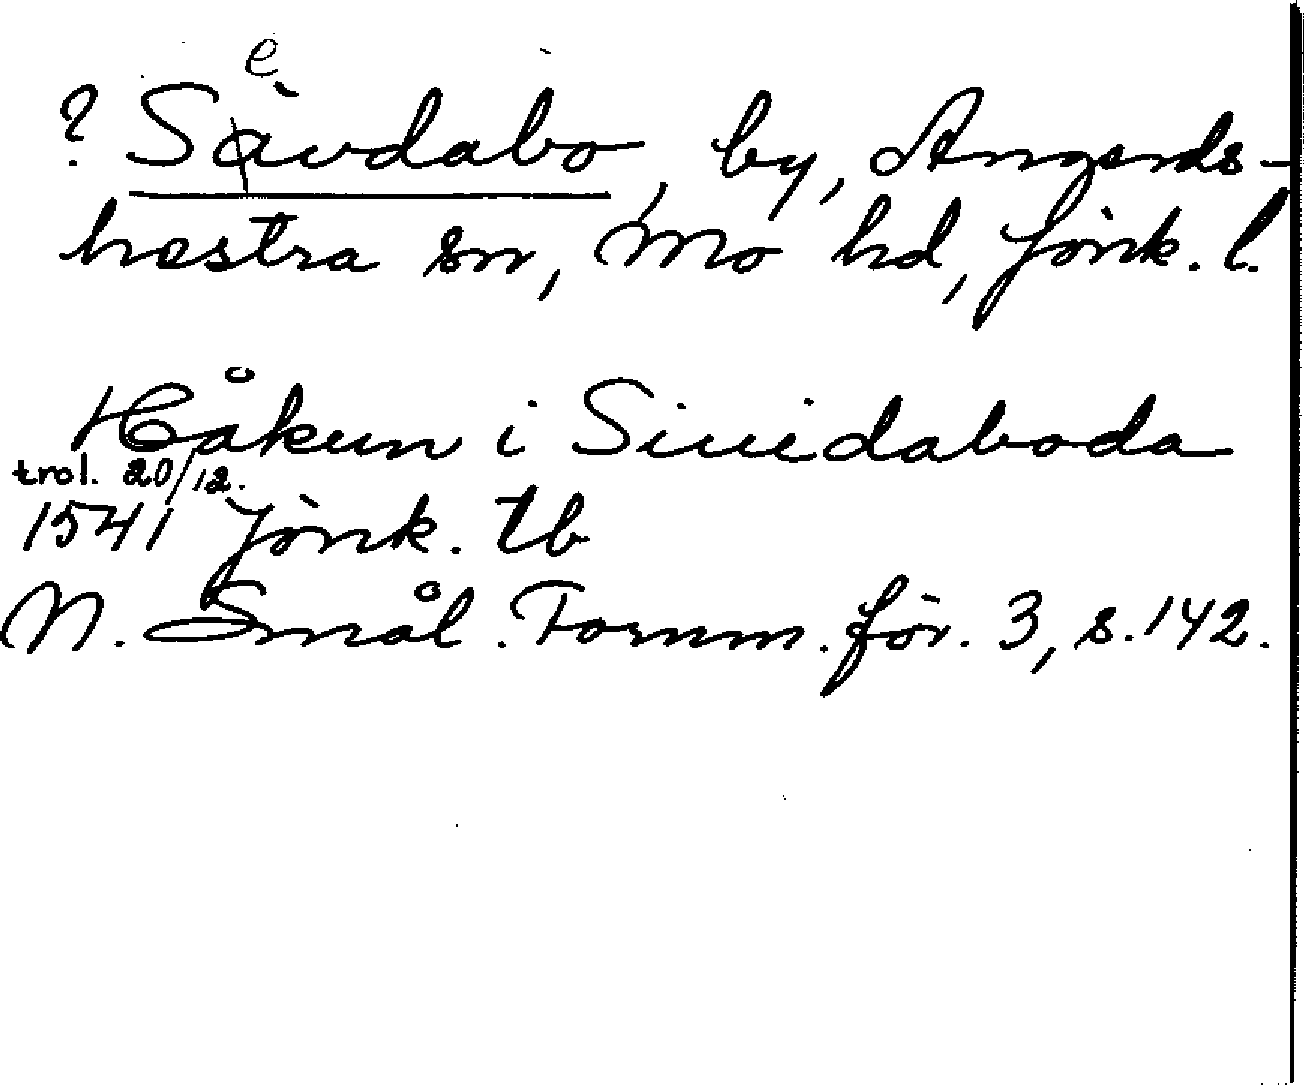 e
? Sävdabo, by, Angerds-
hestra sn, Mo hd, Jönk. l.
Håkun i Siuidaboda
trol. 20/12.
1541 Jönk. tb
N. Smål. Fornm. för. 3, s. 142.